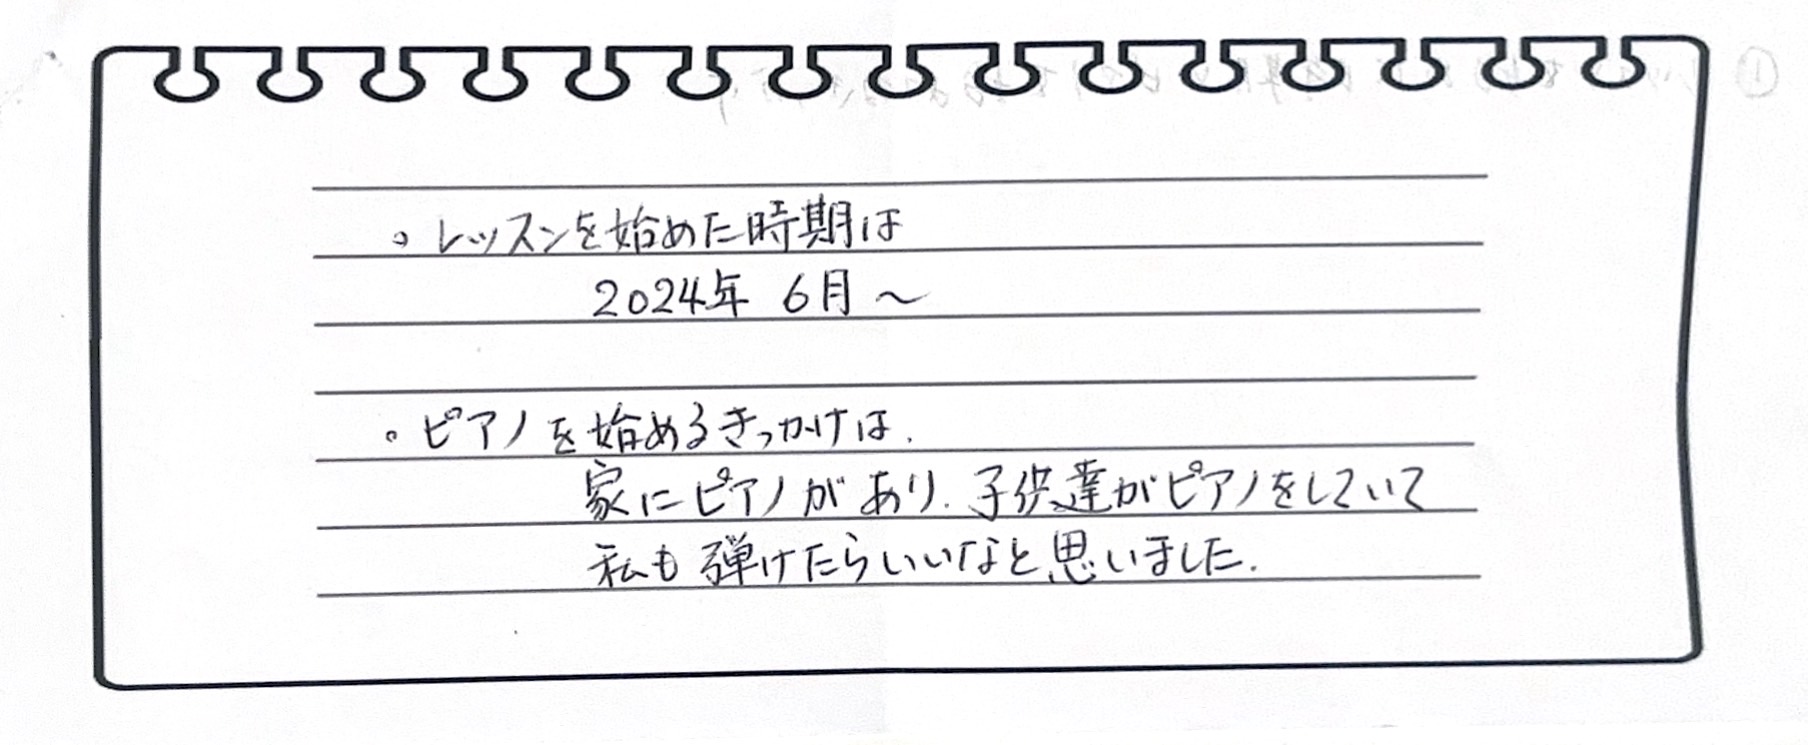 。レッスンを始めた時期は
2024年 6月～
。ピアノを始めるきっかけは、
家にピアノがあり、子供達がピアノをしていて
私も弾けたらいいなと思いました。